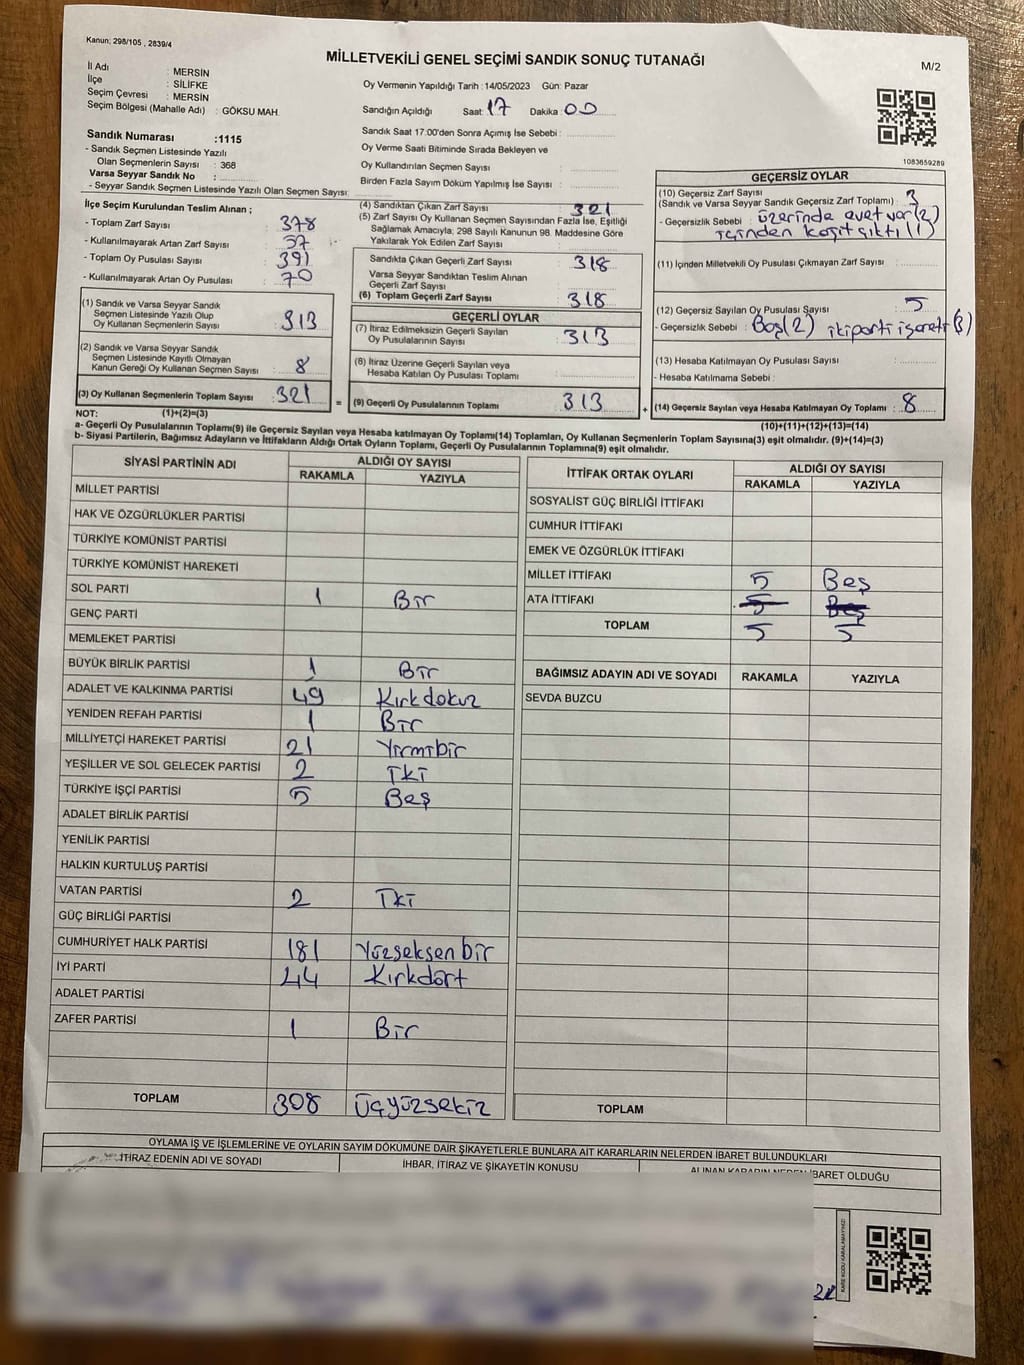 Kanun; 298/105 , 2839/4
MİLLETVEKİLİ GENEL SEÇİMİ SANDIK SONUÇ TUTANAĞI
M/2
İl Adı : MERSİN
İlçe : SİLİFKE
Seçim Çevresi : MERSİN
Seçim Bölgesi (Mahalle Adı) : GÖKSU MAH.
Sandık Numarası :1115
- Sandık Seçmen Listesinde Yazılı
Olan Seçmenlerin Sayısı : 368
Varsa Seyyar Sandık No :
- Seyyar Sandık Seçmen Listesinde Yazılı Olan Seçmen Sayısı:
Oy Vermenin Yapıldığı Tarih : 14/05/2023 Gün: Pazar
Sandığın Açıldığı Saat: 17 Dakika : 00
Sandık Saat 17:00'den Sonra Açımış İse Sebebi :
Oy Verme Saati Bitiminde Sırada Bekleyen ve
Oy Kullandırılan Seçmen Sayısı :
Birden Fazla Sayım Döküm Yapılmış İse Sayısı :
1083659289
İlçe Seçim Kurulundan Teslim Alınan ;
- Toplam Zarf Sayısı : 378
- Kullanılmayarak Artan Zarf Sayısı : 57
- Toplam Oy Pusulası Sayısı : 391
- Kullanılmayarak Artan Oy Pusulası : 70
(1) Sandık ve Varsa Seyyar Sandık
Seçmen Listesinde Yazılı Olup
Oy Kullanan Seçmenlerin Sayısı : 313
(2) Sandık ve Varsa Seyyar Sandık
Seçmen Listesinde Kayıtlı Olmayan
Kanun Gereği Oy Kullanan Seçmen Sayısı : 8
(3) Oy Kullanan Seçmenlerin Toplam Sayısı : 321
(4) Sandıktan Çıkan Zarf Sayısı : 321
(5) Zarf Sayısı Oy Kullanan Seçmen Sayısından Fazla İse, Eşitliği
Sağlamak Amacıyla; 298 Sayılı Kanunun 98. Maddesine Göre
Yakılarak Yok Edilen Zarf Sayısı :
Sandıkta Çıkan Geçerli Zarf Sayısı : 318
Varsa Seyyar Sandıktan Teslim Alınan
Geçerli Zarf Sayısı :
(6) Toplam Geçerli Zarf Sayısı : 318
GEÇERLİ OYLAR
(7) İtiraz Edilmeksizin Geçerli Sayılan
Oy Pusulalarının Sayısı : 313
(8) İtiraz Üzerine Geçerli Sayılan veya
Hesaba Katılan Oy Pusulası Toplamı :
= (9) Geçerli Oy Pusulalarının Toplamı : 313
GEÇERSİZ OYLAR
(10) Geçersiz Zarf Sayısı
(Sandık ve Varsa Seyyar Sandık Geçersiz Zarf Toplamı) : 3
- Geçersizlik Sebebi : üzerinde evet var (2)
içinden kağıt çıktı (1)
(11) İçinden Milletvekili Oy Pusulası Çıkmayan Zarf Sayısı :
(12) Geçersiz Sayılan Oy Pusulası Sayısı : 5
- Geçersizlik Sebebi : Boş(2) iki parti işareti (3)
(13) Hesaba Katılmayan Oy Pusulası Sayısı :
- Hesaba Katılmama Sebebi :
+ (14) Geçersiz Sayılan veya Hesaba Katılmayan Oy Toplamı : 8
NOT: (1)+(2)=(3)
(10)+(11)+(12)+(13)=(14)
a- Geçerli Oy Pusulalarının Toplamı(9) ile Geçersiz Sayılan veya Hesaba katılmayan Oy Toplamı(14) Toplamları, Oy Kullanan Seçmenlerin Toplam Sayısına(3) eşit olmalıdır. (9)+(14)=(3)
b- Siyasi Partilerin, Bağımsız Adayların ve İttifakların Aldığı Ortak Oyların Toplamı, Geçerli Oy Pusulalarının Toplamına(9) eşit olmalıdır.
SİYASİ PARTİNİN ADI ALDIĞI OY SAYISI
RAKAMLA YAZIYLA
MİLLET PARTİSİ
HAK VE ÖZGÜRLÜKLER PARTİSİ
TÜRKİYE KOMÜNİST PARTİSİ
TÜRKİYE KOMÜNİST HAREKETİ
SOL PARTİ 1 Bir
GENÇ PARTİ
MEMLEKET PARTİSİ
BÜYÜK BİRLİK PARTİSİ 1 Bir
ADALET VE KALKINMA PARTİSİ 49 Kırkdokuz
YENİDEN REFAH PARTİSİ 1 Bir
MİLLİYETÇİ HAREKET PARTİSİ 21 Yirmibir
YEŞİLLER VE SOL GELECEK PARTİSİ 2 İki
TÜRKİYE İŞÇİ PARTİSİ 5 Beş
ADALET BİRLİK PARTİSİ
YENİLİK PARTİSİ
HALKIN KURTULUŞ PARTİSİ
VATAN PARTİSİ 2 İki
GÜÇ BİRLİĞİ PARTİSİ
CUMHURİYET HALK PARTİSİ 181 Yüzseksen bir
İYİ PARTİ 44 Kırkdört
ADALET PARTİSİ
ZAFER PARTİSİ 1 Bir
TOPLAM 308 Üçyüzsekiz
İTTİFAK ORTAK OYLARI ALDIĞI OY SAYISI
RAKAMLA YAZIYLA
SOSYALİST GÜÇ BİRLİĞİ İTTİFAKI
CUMHUR İTTİFAKI
EMEK VE ÖZGÜRLÜK İTTİFAKI
MİLLET İTTİFAKI 5 Beş
ATA İTTİFAKI 5 Beş
TOPLAM 5 5
BAĞIMSIZ ADAYIN ADI VE SOYADI RAKAMLA YAZIYLA
SEVDA BUZCU
TOPLAM
OYLAMA İŞ VE İŞLEMLERİNE VE OYLARIN SAYIM DÖKÜMÜNE DAİR ŞİKAYETLERLE BUNLARA AİT KARARLARIN NELERDEN İBARET BULUNDUKLARI
İTİRAZ EDENİN ADI VE SOYADI İHBAR, İTİRAZ VE ŞİKAYETİN KONUSU ALINAN KARARIN NEDEN İBARET OLDUĞU
KARE KODU KARALAMAYINIZ!